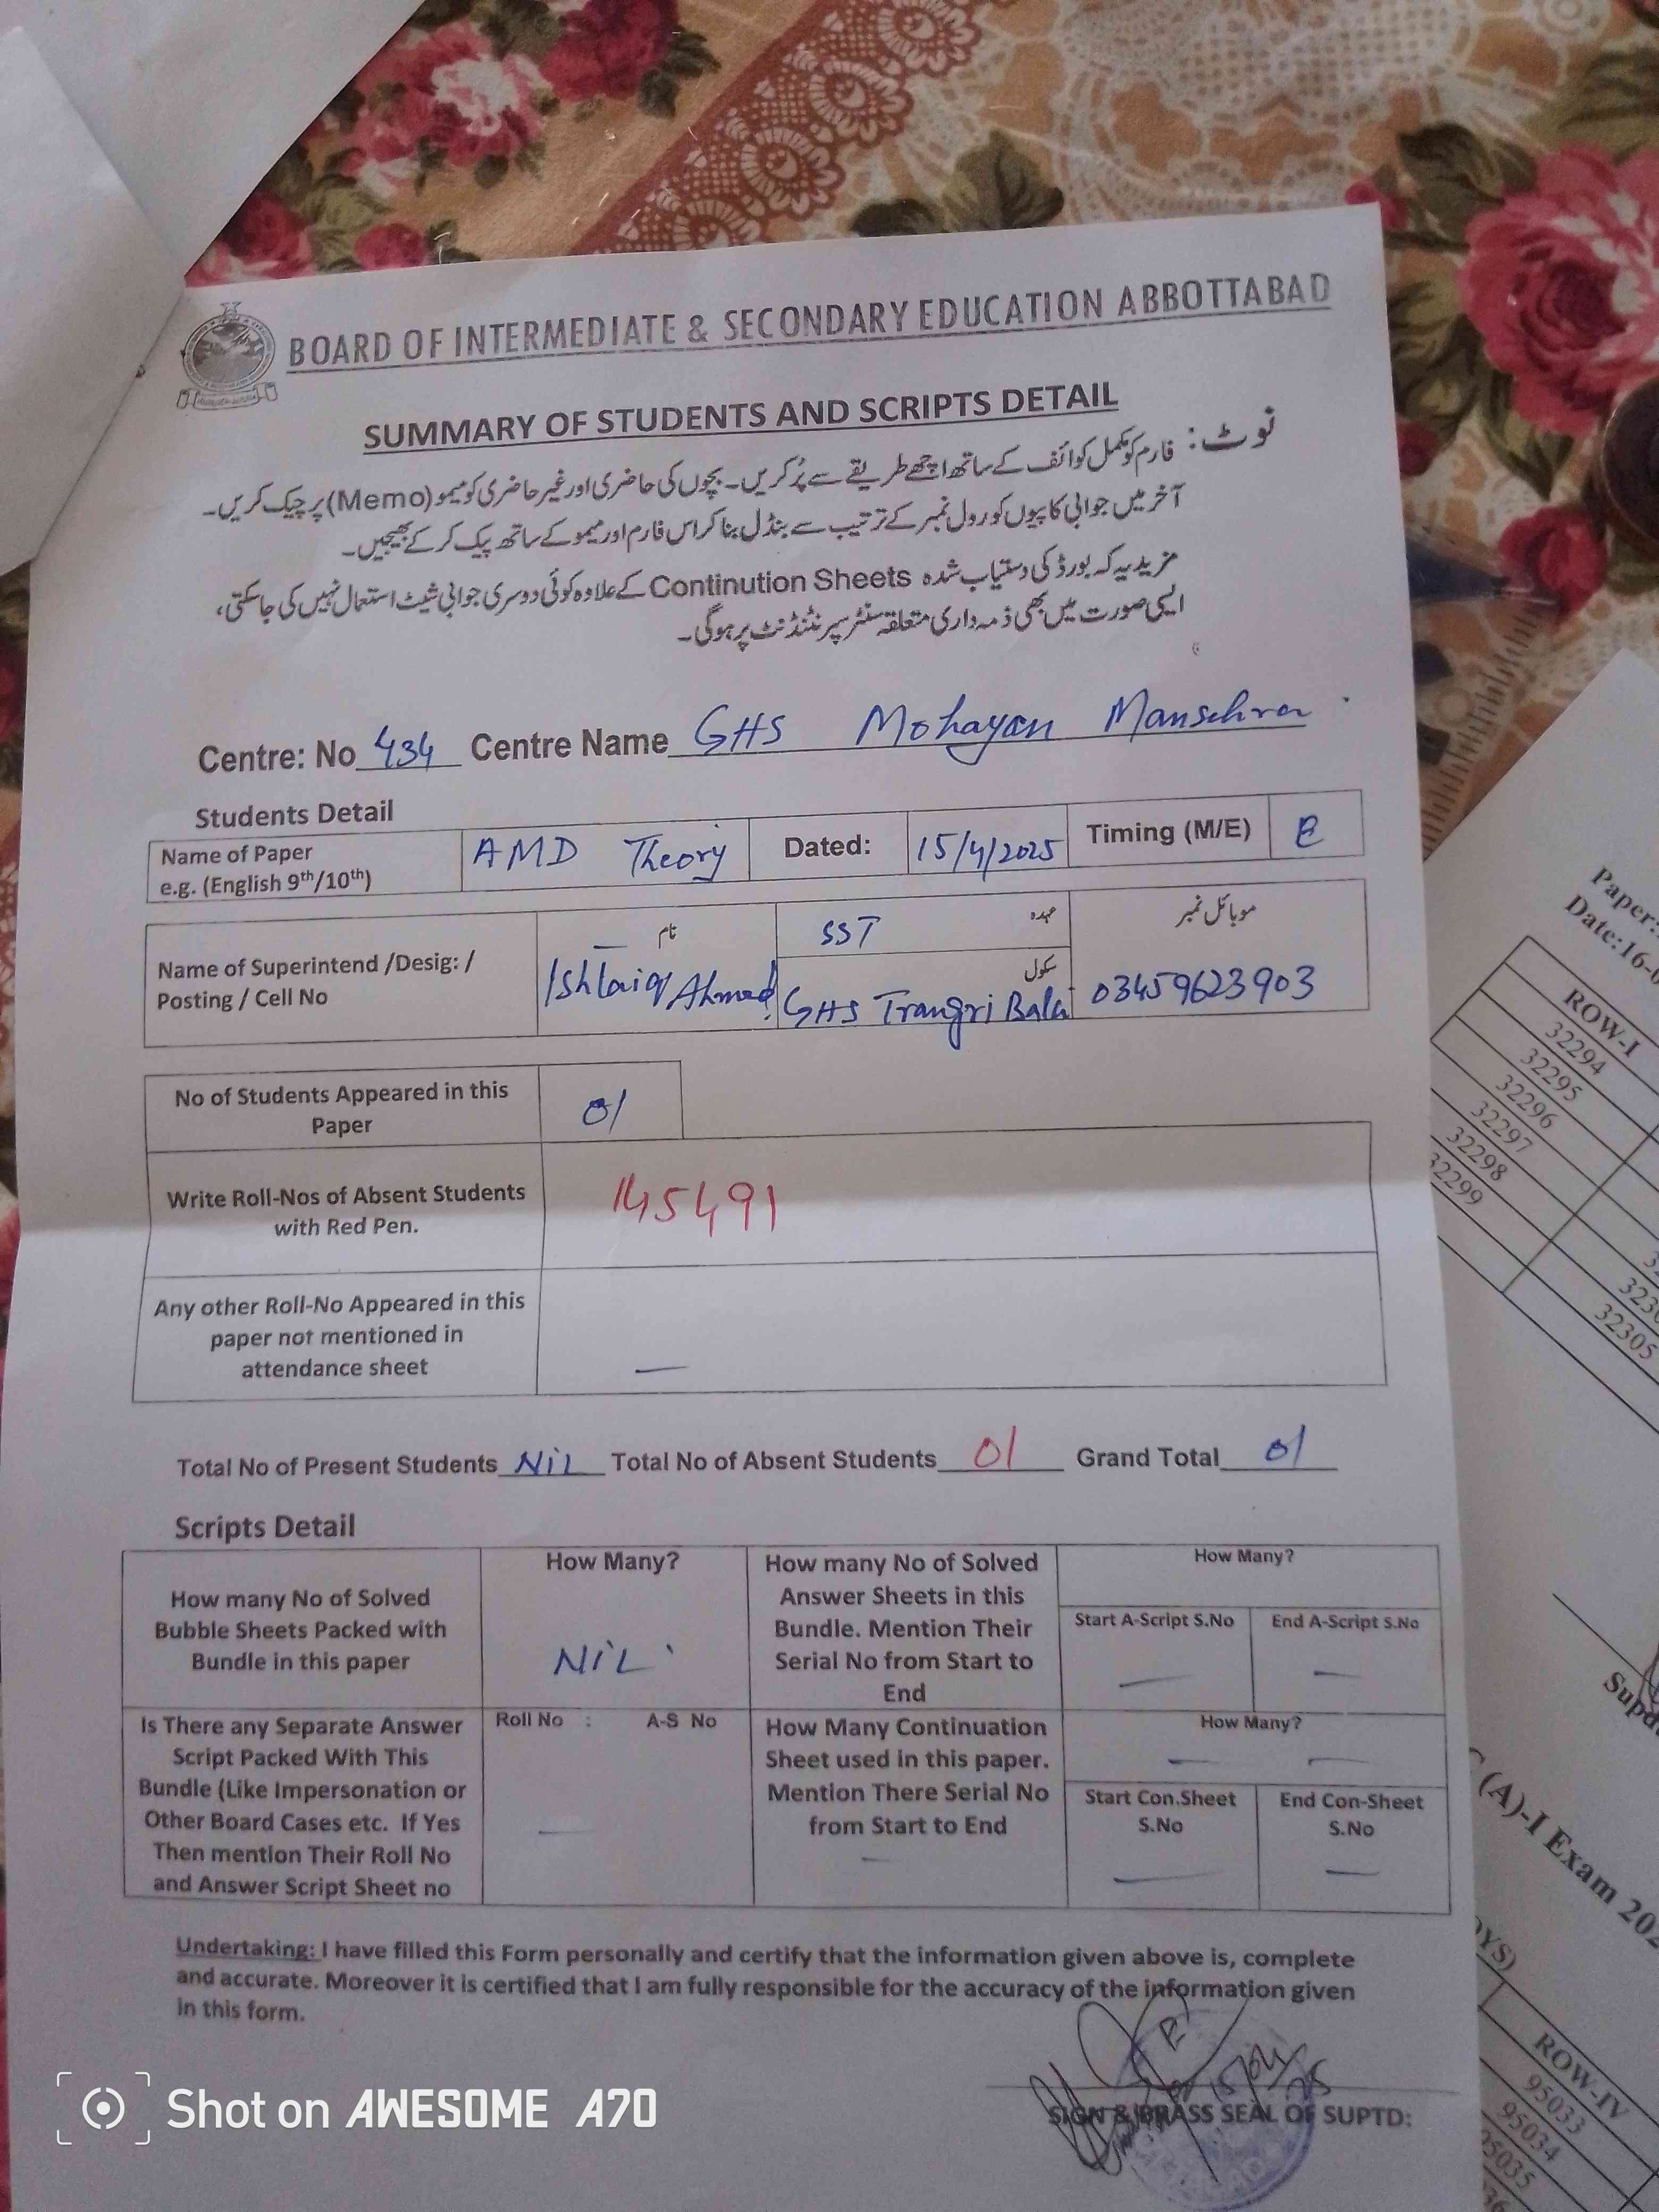 BOARD OF INTERMEDIATE & SECONDARY EDUCATION ABBOTTABAD
SUMMARY OF STUDENTS AND SCRIPTS DETAIL
نوٹ: فارم کو مکمل کوائف کے ساتھ اچھے طریقے سے پُر کریں۔ بچوں کی حاضری اور غیر حاضری کو میمو (Memo) پر چیک کریں۔
آخر میں جوابی کاپیوں کو رول نمبر کے ترتیب سے بنڈل بنا کر اس فارم اور میمو کے ساتھ پیک کر کے بھیجیں۔
مزید یہ کہ بورڈ کی دستیاب شدہ Continution Sheets کے علاوہ کوئی دوسری جوابی شیٹ استعمال نہیں کی جا سکتی،
ایسی صورت میں بھی ذمہ داری متعلقہ سنٹر سپرنٹنڈنٹ پر ہوگی۔
Centre: No 434 Centre Name GHS Mohayan Mansehra
Students Detail
Name of Paper
e.g. (English 9th/10th)
AMD Theory
Dated:
15/4/2025
Timing (M/E)
E
Name of Superintend /Desig: /
Posting / Cell No
نام
Ishtaiq Ahmad
عہدہ
SST
سکول
GHS Trangri Bala
موبائل نمبر
03459623903
No of Students Appeared in this
Paper
01
Write Roll-Nos of Absent Students
with Red Pen.
145491
Any other Roll-No Appeared in this
paper not mentioned in
attendance sheet
—
Total No of Present Students NiL Total No of Absent Students 01 Grand Total 01
Scripts Detail
How many No of Solved
Bubble Sheets Packed with
Bundle in this paper
How Many?
NiL
How many No of Solved
Answer Sheets in this
Bundle. Mention Their
Serial No from Start to
End
How Many?
Start A-Script S.No
—
End A-Script S.No
—
Is There any Separate Answer
Script Packed With This
Bundle (Like Impersonation or
Other Board Cases etc. If Yes
Then mention Their Roll No
and Answer Script Sheet no
Roll No : A-S No
—
How Many Continuation
Sheet used in this paper.
Mention There Serial No
from Start to End
—
How Many?
— —
Start Con.Sheet
S.No
—
End Con-Sheet
S.No
—
Undertaking: I have filled this Form personally and certify that the information given above is, complete
and accurate. Moreover it is certified that I am fully responsible for the accuracy of the information given
in this form.
SIGN & BRASS SEAL OF SUPTD:
Shot on AWESOME A70
Paper:
Date:16-0
ROW-I
32294
32295
32296
32297
32298
32299
32305
(A)-I Exam 202
ROW-IV
95033
95034
95035